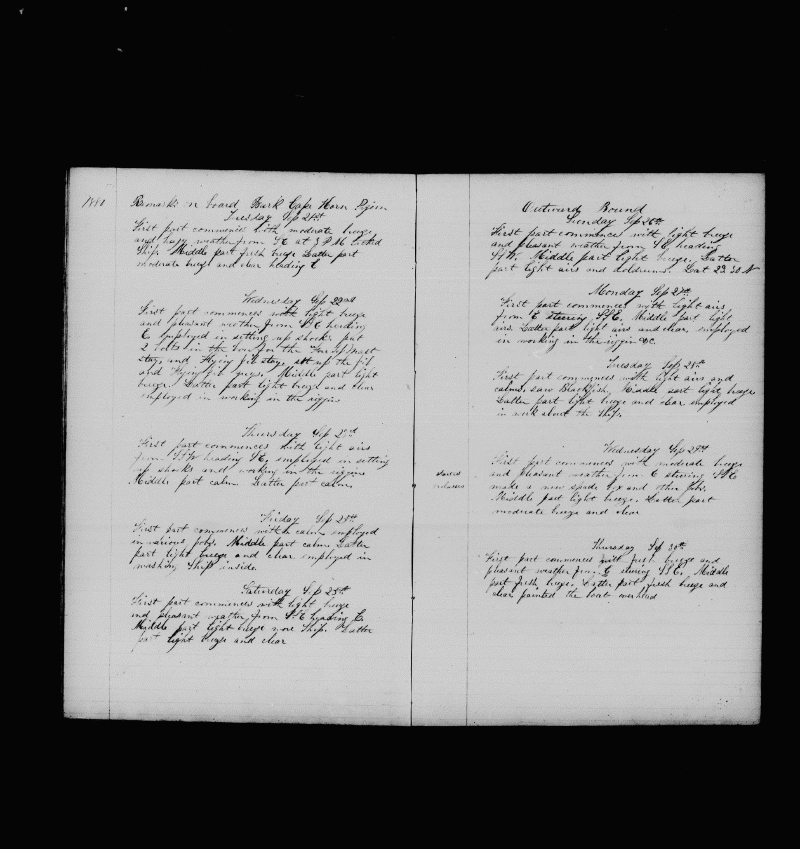 1880
Remarks on board Bark Cape Horn Pigeon
Tuesday Sep 21st
First part commences with moderate breeze
and hazy weather from SE at 3 P.M. tacked
Ship. Middle part fresh breeze Latter part
moderate breeze and clear heading E
Wednesday Sep 22nd
First part commences with light breeze
and pleasant weather from SSE heading
E employed in setting up shocks put
2 bolts in the bow for the Foretopmast
stay, and flying jib stay, set up the jib
and flying jib guys. Middle part light
breeze. Latter part light breeze and clear
employed in working in the rigging
Thursday Sep 23rd
First part commences with light airs
from SSW heading SE, employed in setting
up shocks and working in the rigging
Middle part calm Latter part calm
Friday Sep 24th
First part commences with calm employed
in various jobs. Middle part calm. Latter
part light breeze and clear employed in
washing Ship inside.
Saturday Sep 25th
First part commences with light breeze
and pleasant weather from SSE heading E.
Middle part light breeze wore Ship. Latter
part light breeze and clear
Outward Bound
Sunday Sep 26th
First part commences with light breeze
and pleasant weather from SE, heading
SSW. Middle part light breeze. Latter
part light airs and doldrums. Lat 29.30 N
Monday Sep 27th
First part commences with light airs,
from E steering SSE. Middle part light
airs. Latter part light airs and clear, employed
in working in the riggin &c.
Tuesday Sep 28th
First part commences with light airs and
calms, saw Blackfish, Middle part light breeze
Latter part light breeze and clear employed
in work about the Ship.
Wednesday Sep 29th
First part commences with moderate breeze
and pleasant weather from E steering SSE
make a new spade box and other jobs.
Middle part light breeze. Latter part
moderate breeze and clear
Thursday Sep 30th
First part commences with fresh breeze and
pleasant weather from E steering SSE. Middle
part fresh breeze. Latter part fresh breeze and
clear painted the boat overhead